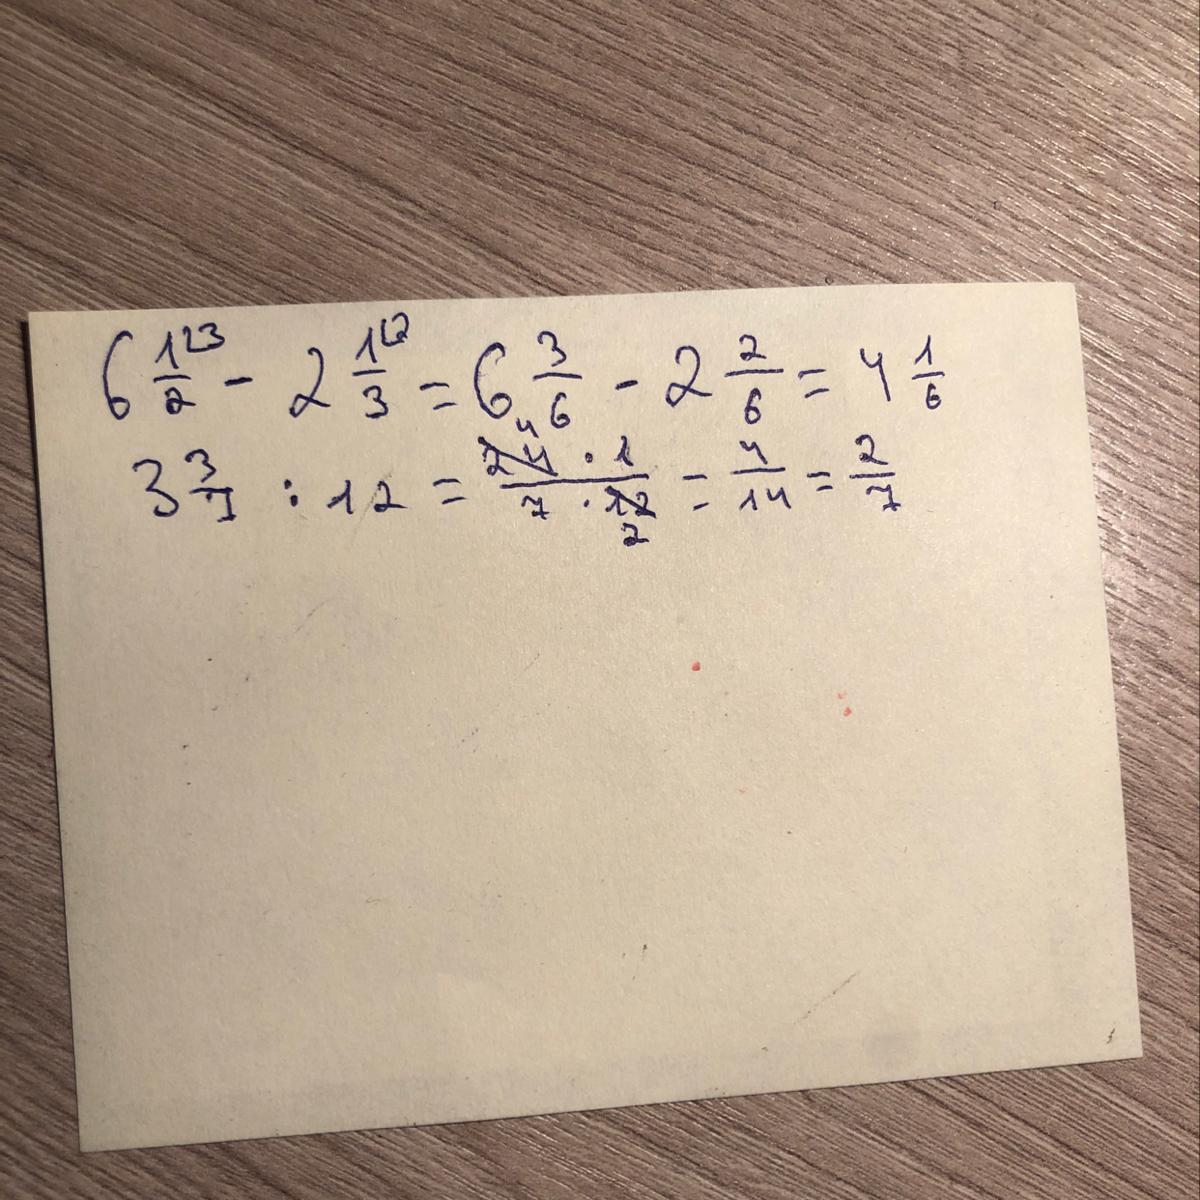 6 1⌊3/2 - 2 1⌊2/3 = 6 3/6 - 2 2/6 = 4 1/6
3 3/7 : 12 = 24 4 · 1 / 7 · 12 2 = 4/14 = 2/7